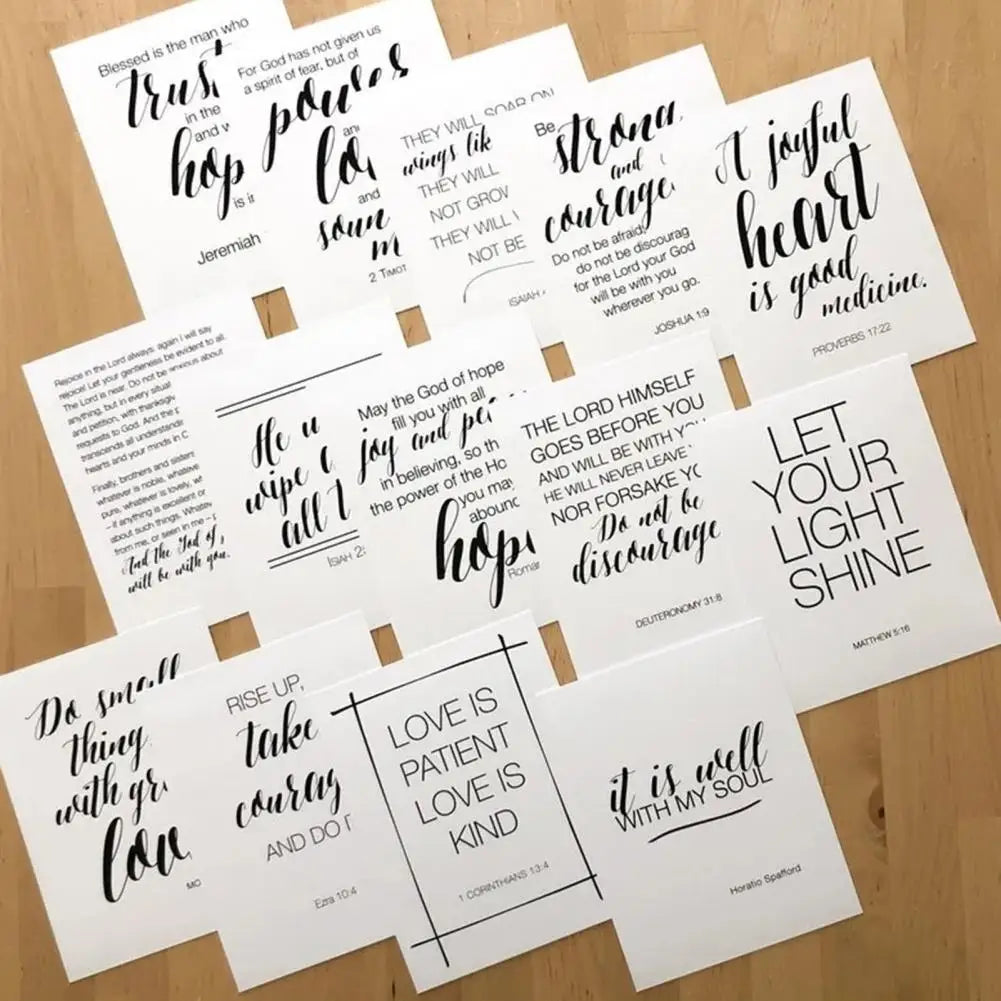 Blessed is the man who
trust
in the
and
hop
is
Jeremiah
For God has not given us
a spirit of fear, but of
power
an
lo
and
soun
m
2 TIMOT
THEY WILL SOAR ON
wings lik
THEY WILL
NOT GROW
THEY WILL
NOT BE
ISAIAH
Be
strong
and
courage
Do not be afraid;
do not be discourag
for the Lord your God
will be with you
wherever you go.
JOSHUA 1:9
A joyful
heart
is good
medicine.
PROVERBS 17:22
Rejoice in the Lord always: again I will say
rejoice! Let your gentleness be evident to all.
The Lord is near. Do not be anxious about
anything, but in every situat
and petition, with thanksgiv
requests to God. And the
transcends all understandin
hearts and your minds in C
Finally, brothers and sisters
whatever is noble, whateve
pure, whatever is lovely, wh
– if anything is excellent or
about such things. Whatev
from me, or seen in me –
And the God of
will be with you.
He
wipe
all
ISIAH 2
May the God of hope
fill you with all
joy and pea
in believing, so th
the power of the Ho
you may
abound
hope
Roman
THE LORD HIMSELF
GOES BEFORE YOU
AND WILL BE WITH YOU
HE WILL NEVER LEAVE
NOR FORSAKE YO
Do not be
discourage
DEUTERONOMY 31:8
LET
YOUR
LIGHT
SHINE
MATTHEW 5:16
Do small
thing
with gr
love
MO
RISE UP,
take
courag
AND DO
Ezra 10:4
LOVE IS
PATIENT
LOVE IS
KIND
1 CORINTHIANS 13:4
it is well
WITH MY SOUL
Horatio Spafford